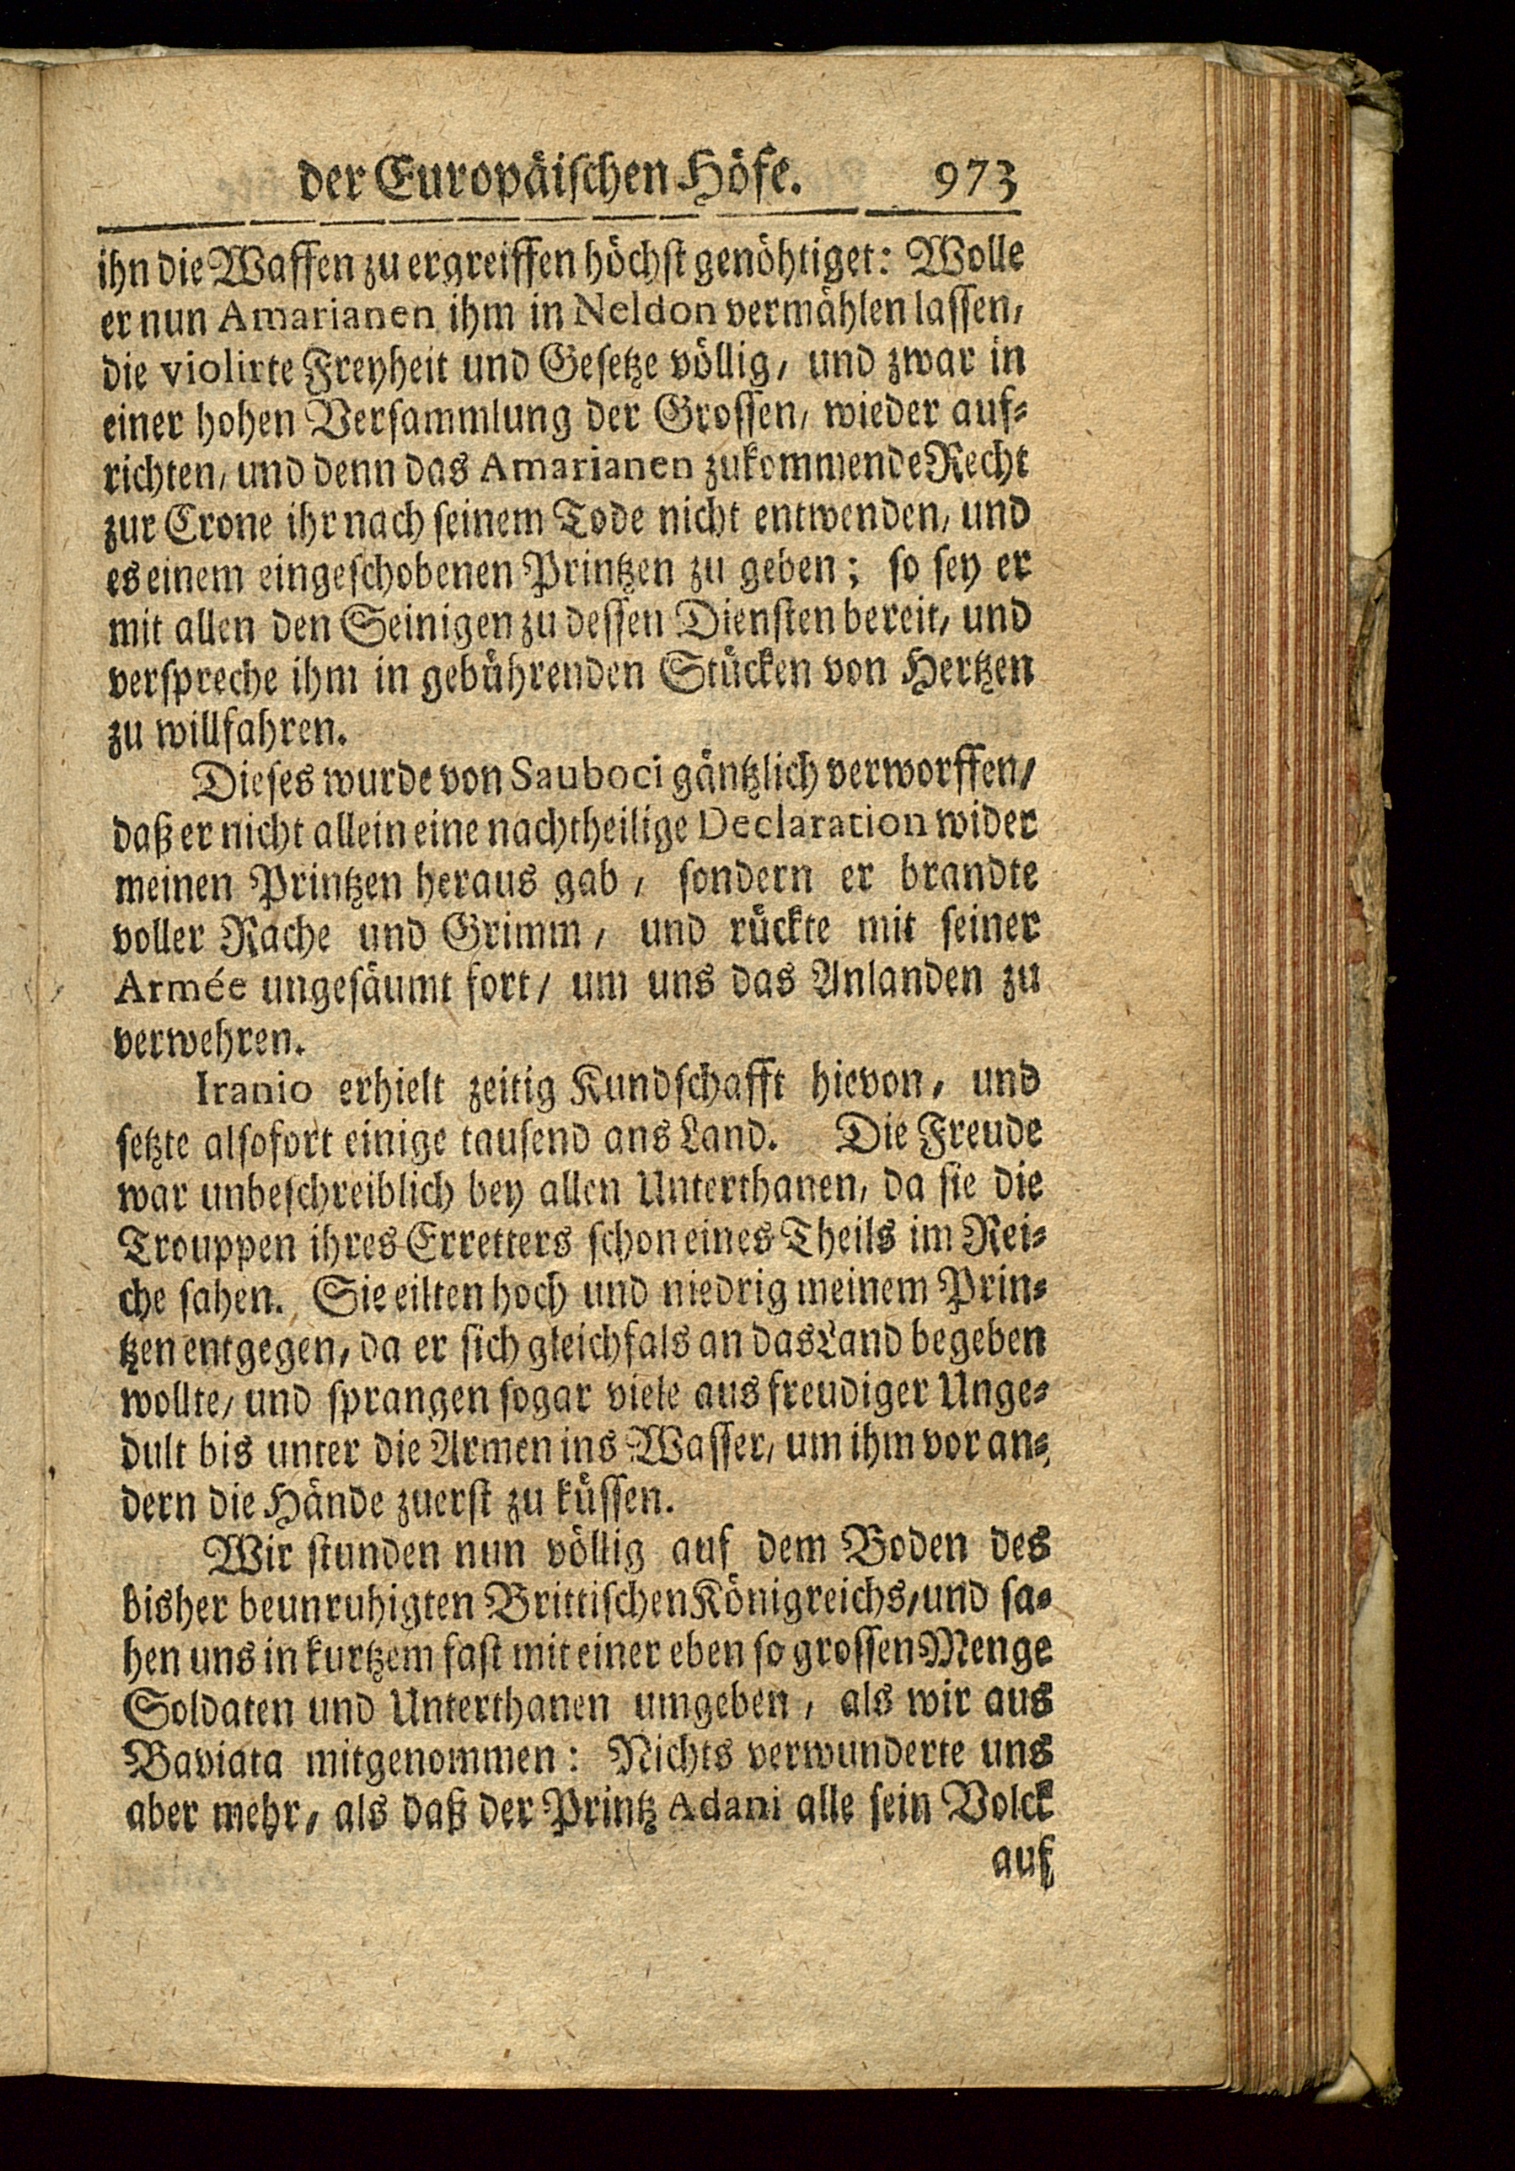 der Europäischen Höfe. 973
ihn die Waffen zu ergreiffen höchst genöhtiget: Wolle
er nun Amarianen ihm in Neldon vermählen lassen,
die violirte Freyheit und Gesetze völlig, und zwar in
einer hohen Versammlung der Grossen, wieder auf-
richten, und denn das Amarianen zukommende Recht
zur Crone ihr nach seinem Tode nicht entwenden, und
es einem eingeschobenen Printzen zu geben; so sey er
mit allen den Seinigen zu dessen Diensten bereit, und
verspreche ihm in gebührenden Stücken von Hertzen
zu willfahren.
Dieses wurde von Sauboci gäntzlich verworffen/
daß er nicht allein eine nachtheilige Declaration wider
meinen Printzen heraus gab, sondern er brandte
voller Rache und Grimm, und rückte mit seiner
Armée ungesäumt fort/ um uns das Anlanden zu
verwehren.
Iranio erhielt zeitig Kundschafft hievon, und
setzte alsofort einige tausend ans Land. Die Freude
war unbeschreiblich bey allen Unterthanen, da sie die
Trouppen ihres Erretters schon eines Theils im Rei-
che sahen. Sie eilten hoch und niedrig meinem Prin-
tzen entgegen, da er sich gleichfals an das Land begeben
wollte, und sprangen sogar viele aus freudiger Unge-
dult bis unter die Armen ins Wasser, um ihm vor an-
dern die Hände zuerst zu küssen.
Wir stunden nun völlig auf dem Boden des
bisher beunruhigten Brittischen Königreichs, und sa-
hen uns in kurtzem fast mit einer eben so grossen Menge
Soldaten und Unterthanen umgeben, als wir aus
Baviata mitgenommen: Nichts verwunderte uns
aber mehr, als daß der Printz Adani alle sein Volck
auf